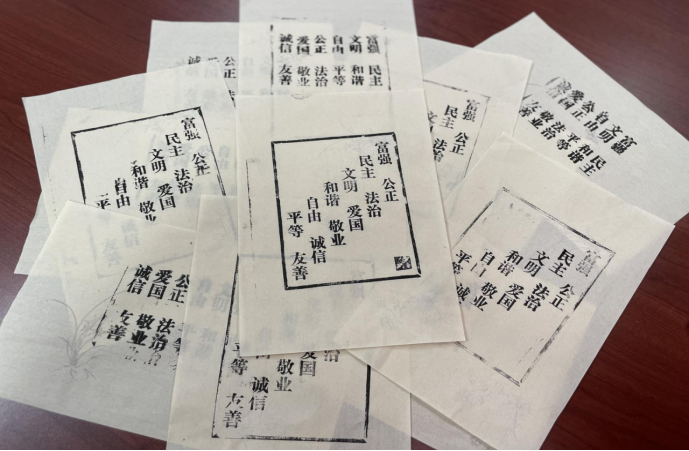 富强 民主
文明 和谐
自由 平等
公正 法治
爱国 敬业
诚信 友善
公正
爱国
诚信
富强
民主
文明 和谐
自由 平等
公正 法治
爱国 敬业
友善
富强
民主
公正
富强
民主
文明
和谐
自由
平等
公正
法治
爱国
富强
民主
文明
和谐
自由
平等
公正
法治
爱国
敬业
诚信
友善
富强
民主
文明
和谐
自由
平等
公正
法治
爱国
敬业
诚
公正 法治
爱国 敬业
诚信 友善
自由
平等
爱国
敬业
诚信
友善